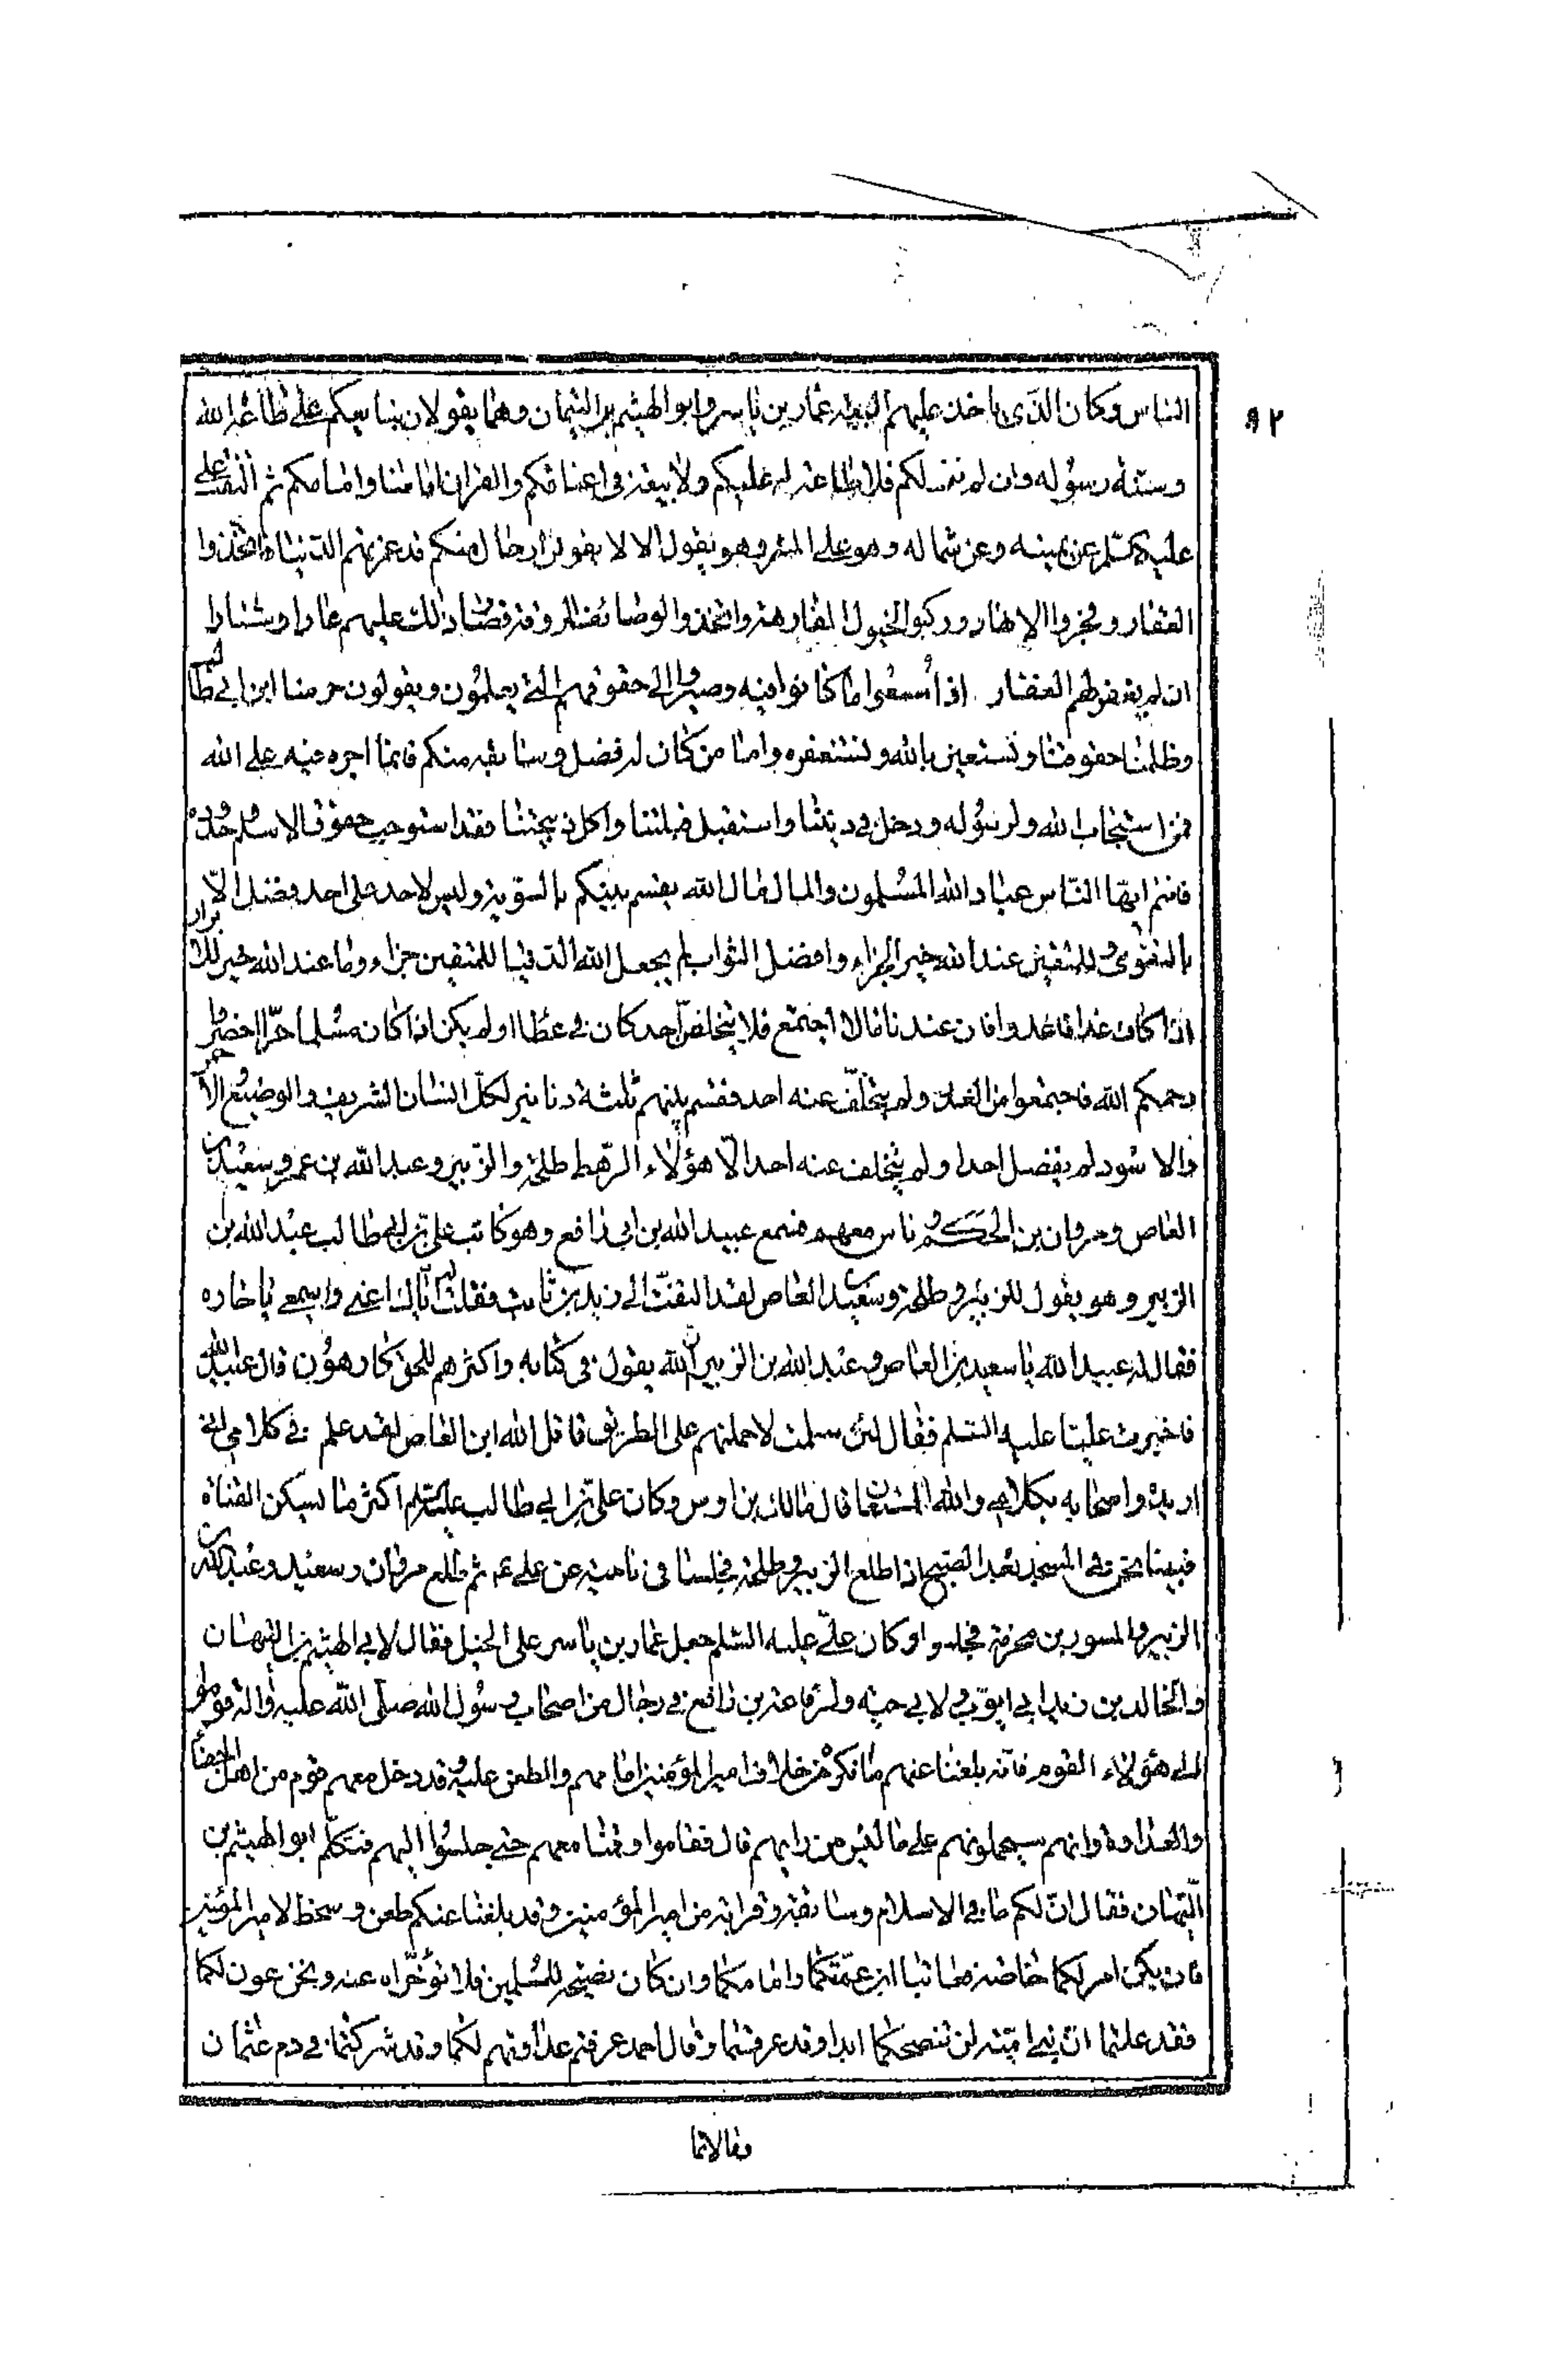 ٩٢
الناس وكان الذى ياخذ عليهم البيعة عمار بن ياسر وابو الهيثم بن التيهان وهما يقولان نبايعكم على طاعة الله
وسنة رسوله وان لم نف لكم فلا طاعة لنا عليكم ولا بيعة فى اعناقكم والقران امامنا وامامكم ثم التفت على
عليه السلم عن يمينه وعن شماله وهو على المنبر وهو يقول الا لا يقولن رجال منكم قد غمرتهم الدنيا فاتخذوا
العقار وفجروا الانهار وركبوا الخيول الفارهة واتخذوا الوصائف الروقة فصار ذلك عليهم عارا وشنارا
ان لم يغفر لهم الغفار اذا منعوا ما كانوا فيه وصيروا الى حقوقهم التى يعلمون ويقولون حرمنا ابن ابى طالب
وظلمنا حقوقنا ونستعين بالله ونستغفره واما من كان له فضل وسابقة منكم فانما اجره فيه على الله
فمن استجاب لله ولرسوله ودخل فى ديننا واستقبل قبلتنا واكل ذبيحتنا فقد استوجب حقوق الاسلام وحدوده
فانتم ايها الناس عباد الله المسلمون والمال مال الله يقسم بينكم بالسوية وليس لاحد على احد فضل الا
بالتقوى وللمتقين عند الله خير الجزاء وافضل الثواب لم يجعل الله الدنيا للمتقين جزاء وما عند الله خير للابرار
اذا كان غدا فاغدوا فان عندنا مالا اجتمع فلا يتخلفن احد كان فى عطاء او لم يكن اذا كان مسلما حرا احضروا
رحمكم الله فاجتمعوا من الغد ولم يتخلف عنه احد فقسم بينهم ثلثة دنانير لكل انسان الشريف والوضيع الاحمر
والاسود لم يفضل احدا ولم يتخلف عنه احد الا هؤلاء الرهط طلحة والزبير وعبد الله بن عمر وسعيد بن
العاص ومروان بن الحكم وناس معهم فسمع عبيد الله بن ابى رافع وهو كاتب على بن ابى طالب عبد الله بن
الزبير وهو يقول للزبير وطلحة وسعيد بن العاص لقد التفت الى زيد بن ثابت فقلت له اياك اعنى واسمعى يا جاره
فقال له عبيد الله يا سعيد بن العاص وعبد الله بن الزبير ان الله يقول فى كتابه واكثرهم للحق كارهون قال عبيد الله
فاخبرت عليا عليه السلم فقال لئن سلمت لاحملنهم على الطريق قاتل الله ابن العاص لقد علم فى كلامى انى
اريده واصحابه بكلامى والله المستعان قال مالك بن اوس وكان على بن ابى طالب عليه السلم اكثر ما يسكن القناة
فبينا نحن فى المسجد بعد الصبح اذ اطلع الزبير وطلحة فجلسا فى ناحية عن على ع ثم طلع مروان وسعيد وعبد الله بن
الزبير والمسور بن مخرمة فجلسوا وكان على عليه السلم جعل عمار بن ياسر على الخيل فقال لابى الهيثم بن التيهان
والخالد بن زيد ابى ايوب ولابى حية ولرفاعة بن رافع فى رجال من اصحاب رسول الله صلى الله عليه واله قوموا
الى هؤلاء القوم فانه بلغنا عنهم ما نكره من خلاف امير المؤمنين امامهم والطعن عليه وقد دخل معهم قوم من اهل الجفا
والعداوة وانهم سيحملونهم على ما ليس من رايهم قال فقاموا وقمنا معهم حتى جلسوا اليهم فتكلم ابو الهيثم بن
التيهان فقال ان لكما فى الاسلام وسابقة وقرابة من امير المؤمنين وقد بلغنا عنكم طعن وسخط لامير المؤمنين
فان يكن امر لكما خاصة فعاتبا ابن عمتكما وامامكما وان كان نصيحة للمسلمين فلا تؤخراه عنه ونحن عون لكما
فقد علمتما ان بنى امية لن تنصحكما ابدا وقد عرفتما وقال احمد عرفتم عداوتهم لكما وقد شركتما فى دم عثمان
ومالاتما